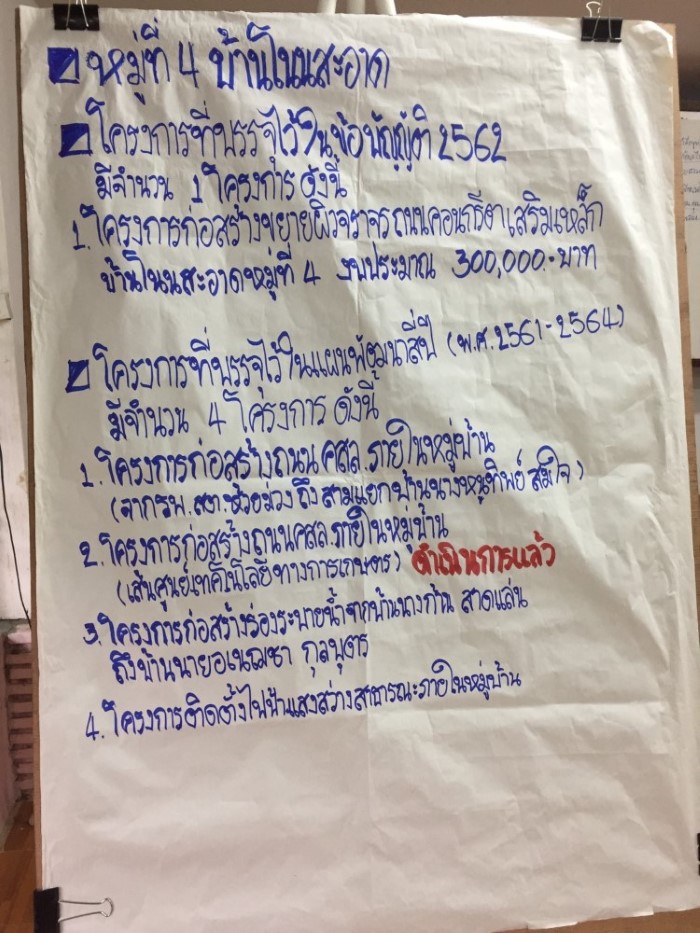 หมู่ที่ 4 บ้านโนนสะอาด
โครงการที่บรรจุไว้ในข้อบัญญัติ 2562
มีจำนวน 1 โครงการ ดังนี้
1. โครงการก่อสร้างขยายผิวจราจรถนนคอนกรีตเสริมเหล็ก
บ้านโนนสะอาดหมู่ที่ 4 งบประมาณ 300,000.-บาท
โครงการที่บรรจุไว้ในแผนพัฒนาสี่ปี (พ.ศ.2561-2564)
มีจำนวน 4 โครงการ ดังนี้
1. โครงการก่อสร้างถนน คสล. ภายในหมู่บ้าน
(จากรพ.สต.ห้วยม่วง ถึง สามแยกบ้านนางหนูทิพย์ สมใจ)
2. โครงการก่อสร้างถนนคสล.ภายในหมู่บ้าน
(เส้นศูนย์เทคโนโลยีทางการเกษตร) ดำเนินการแล้ว
3. โครงการก่อสร้างร่องระบายน้ำจากบ้านนางก้าน สาดแล่น
ถึงบ้านนายอเนฌชา กุลบุตร
4. โครงการติดตั้งไฟฟ้าแสงสว่างสาธารณะภายในหมู่บ้าน